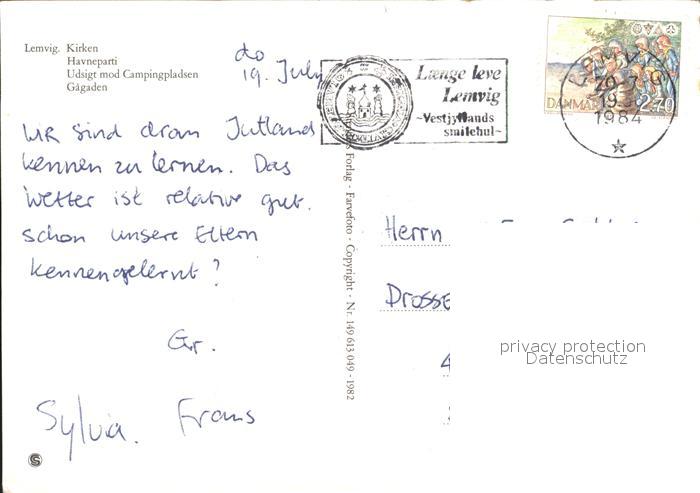 Lemvig. Kirken
Havneparti
Udsigt mod Campingpladsen
Gågaden
do
19. July
Længe leve
Lemvig
~Vestjyllands
smilehul~
DANMARK 2.70
19.
1984
Wir sind dran Jutland
kennen zu lernen. Das
Wetter ist relative gut.
schon unsere Eltern
kennengelernt?
Gr.
Sylvia. Frans
Forlag - Farvefoto - Copyright - Nr. 149 613 049 - 1982
Herrn
Drosse
4
privacy protection
Datenschutz
S